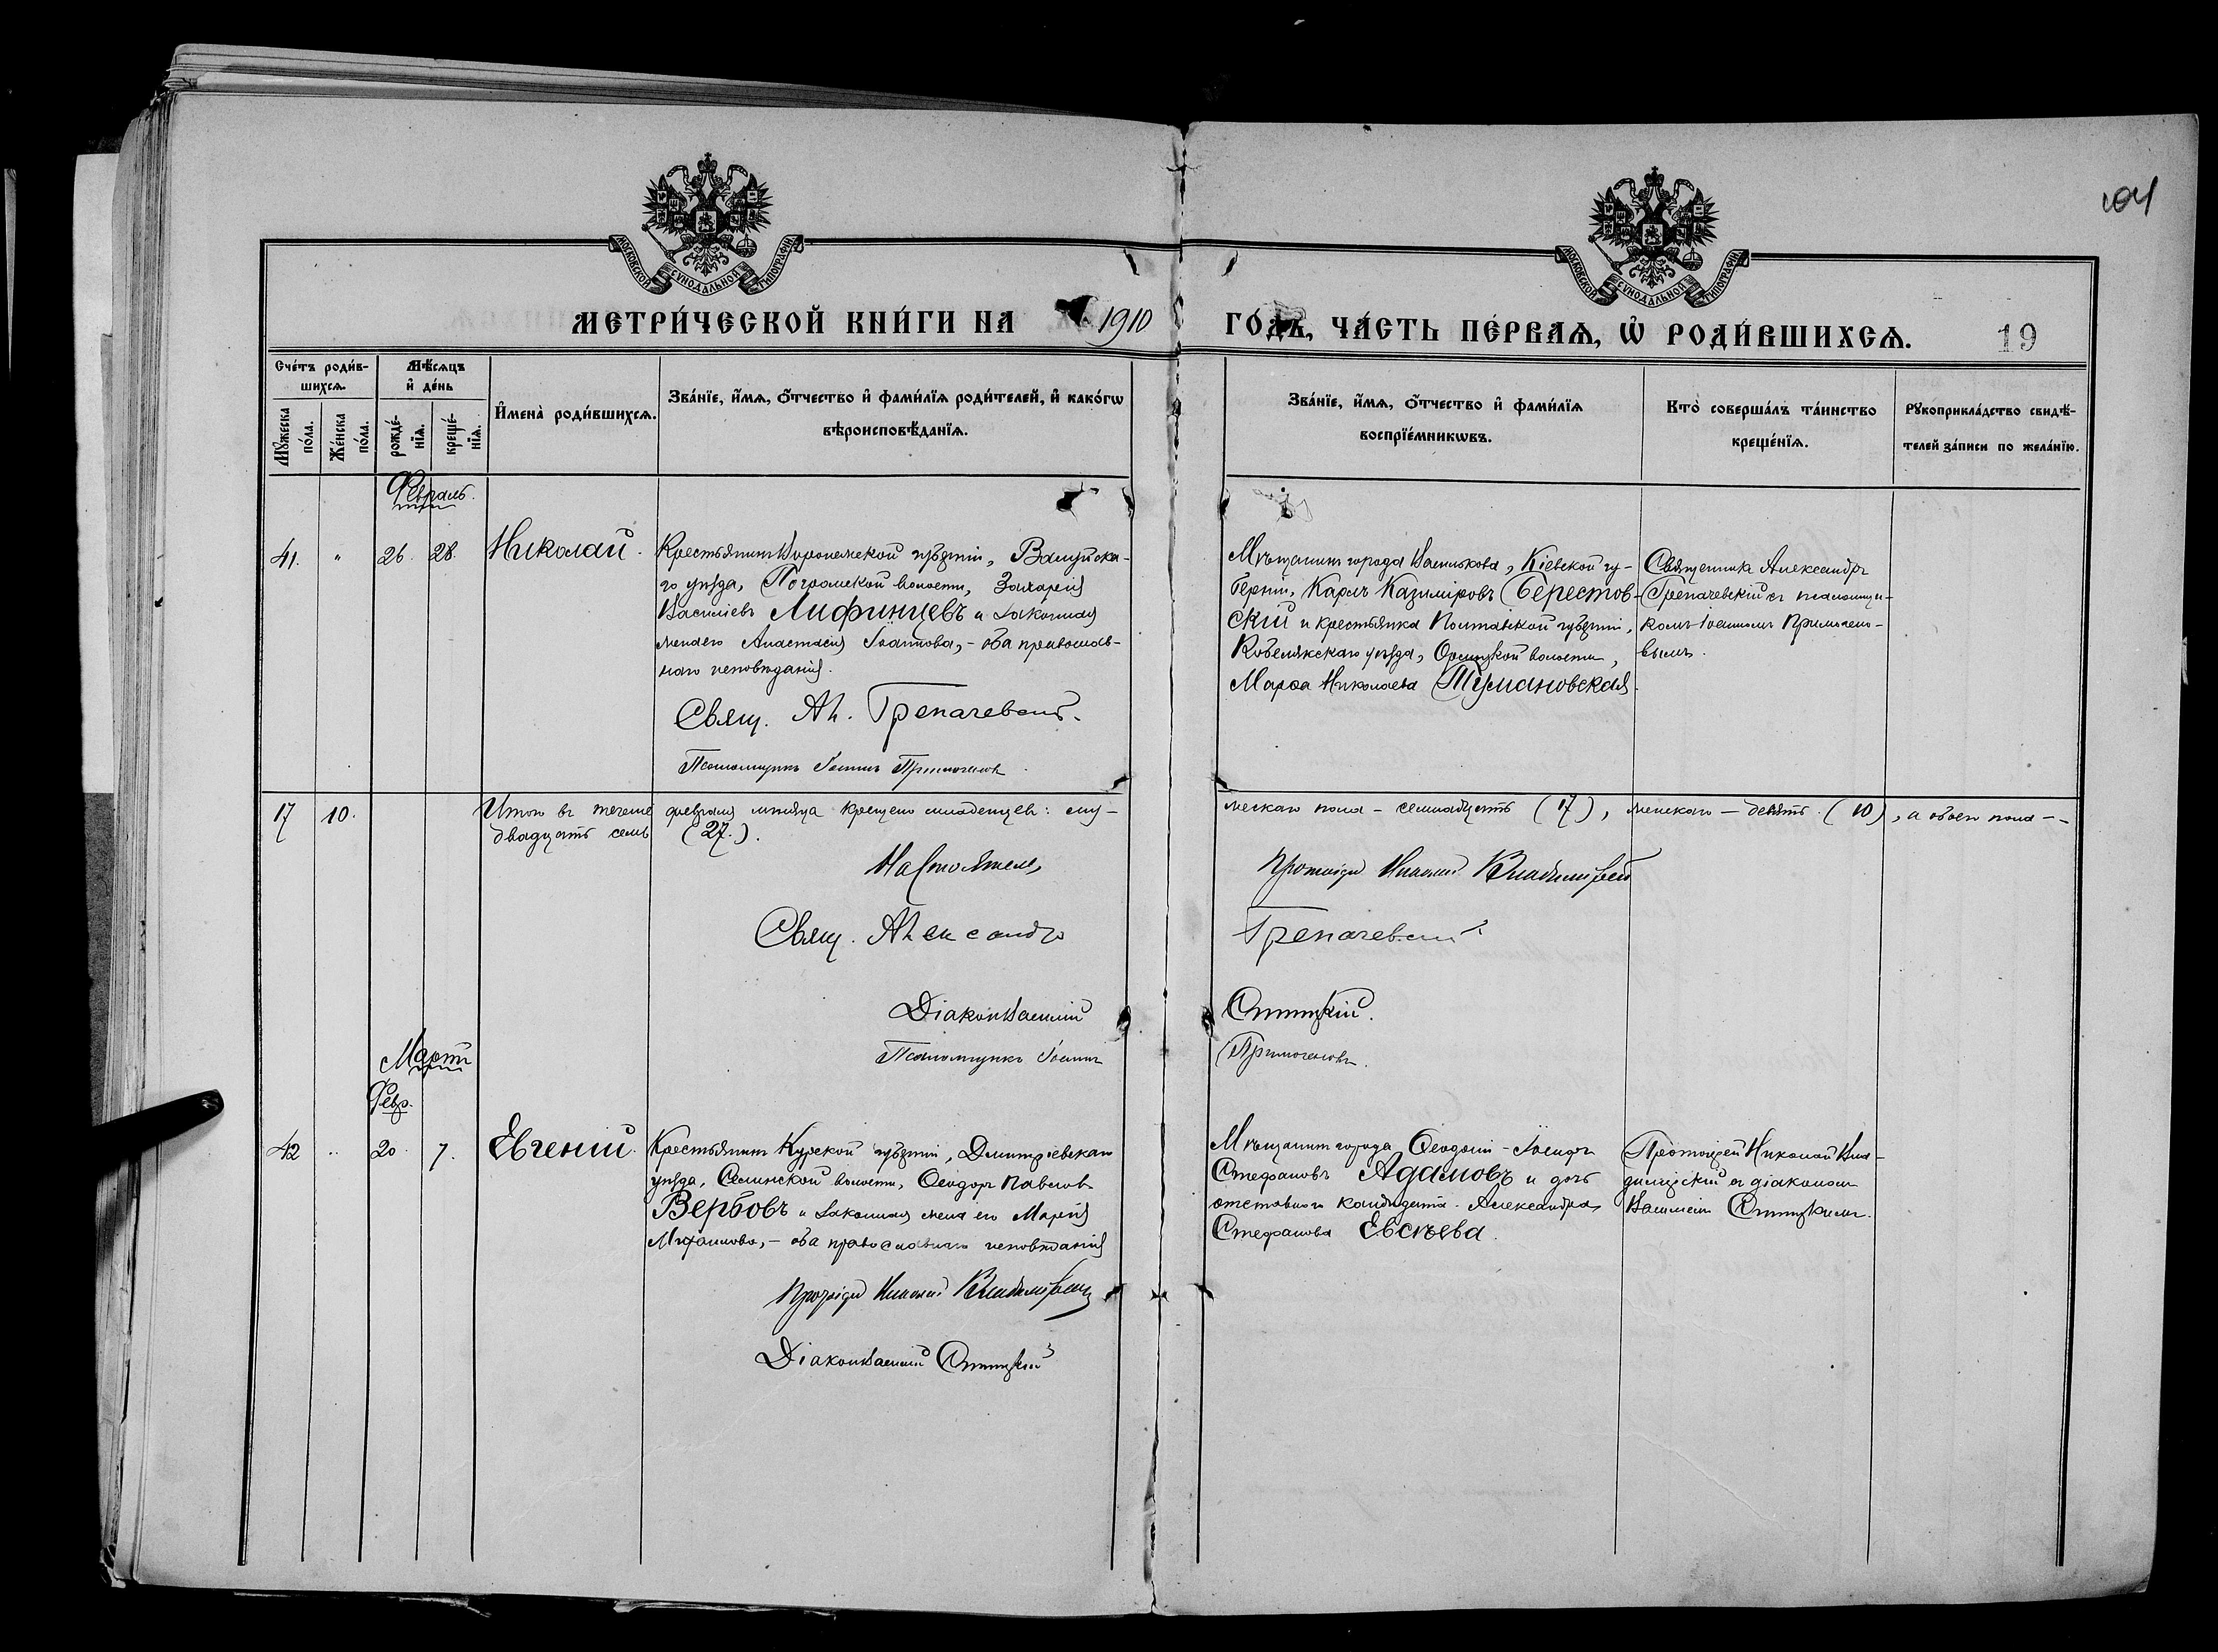 104
МОСКОВСКОЙ СУНОДАЛЬНОЙ ТИПОГРАФІИ
МОСКОВСКОЙ СУНОДАЛЬНОЙ ТИПОГРАФІИ
МЕТРИ́ЧЕСКОЙ КНИ́ГИ НА 1910 ГО́ДЪ, ЧА́СТЬ ПЕ́РВАѦ, Ѡ҆ РОДИ́ВШИХСѦ.
19
Сче́тъ роди́в-
шихсѧ.
Мꙋ́жеска
по́ла.
Же́нска
по́ла.
Мѣ́сѧцъ
и҆ де́нь
рожде́-
нїѧ.
креще́-
нїѧ.
И҆мена̀ роди́вшихсѧ.
Зва́нїе, и҆́мѧ, ѻ҆́тчество и҆ фами́лїѧ роди́телей, и҆ како́гѡ
вѣроисповѣ́данїѧ.
Зва́нїе, и҆́мѧ, ѻ҆́тчество и҆ фами́лїѧ
воспрїе́мникѡвъ.
Кто̀ соверша́лъ та́инство
креще́нїѧ.
Рꙋкоприкла́дство свидѣ́-
телей за́писи по жела́нїю.
Февраль.
41. " 26. 28. Николай.
Крестьянинъ Воронежской губерніи, Валуйска-
го уѣзда, Погромской волости, Захарій
Василіевъ Лифинцевъ и законная
жена его Анастасія Іоаннова, - оба православ-
наго исповѣданія.
Свящ. Ал. Грепачевскій.
Псаломщикъ Іоаннъ Примоченовъ.
Мѣщанинъ города Василькова, Кіевской гу-
берніи, Карлъ Казиміровъ Берестов-
скій и крестьянка Полтавской губерніи,
Кобелякскаго уѣзда, Орлицкой волости,
Марѳа Николаева Тумановская.
Священникъ Александръ
Грепачевскій съ псаломщи-
комъ Іоанномъ Примочено-
вымъ.
17 10. Итого въ теченіе февраля мѣсяца крещено младенцевъ: му-
жескаго пола - семнадцать (17), женскаго - десять (10), а обоего пола --
двадцать семь (27.).
Настоятель, Протоіерей Николай Владимірскій
Свящ. Александръ Грепачевскій
Діаконъ Василій Спицкій.
Псаломщикъ Іоаннъ Примоченовъ.
Мартъ
Февр.
42 " 20. 7. Евгеній.
Крестьянинъ Курской губерніи, Дмитріевскаго
уѣзда, Селинской волости, Ѳеодоръ Павловъ
Вербовъ и законная жена его Марія
Михаилова, - оба православнаго исповѣданія
Протоіерей Николай Владимірскій
Діаконъ Василій Спицкій
Мѣщанинъ города Ѳеодосіи - Іосифъ
Стефановъ Адамовъ и дочь
отставного кандидата Александра
Стефанова Евсѣева.
Протоіерей Николай Вла-
димірскій съ діакономъ
Василіемъ Спицкимъ.